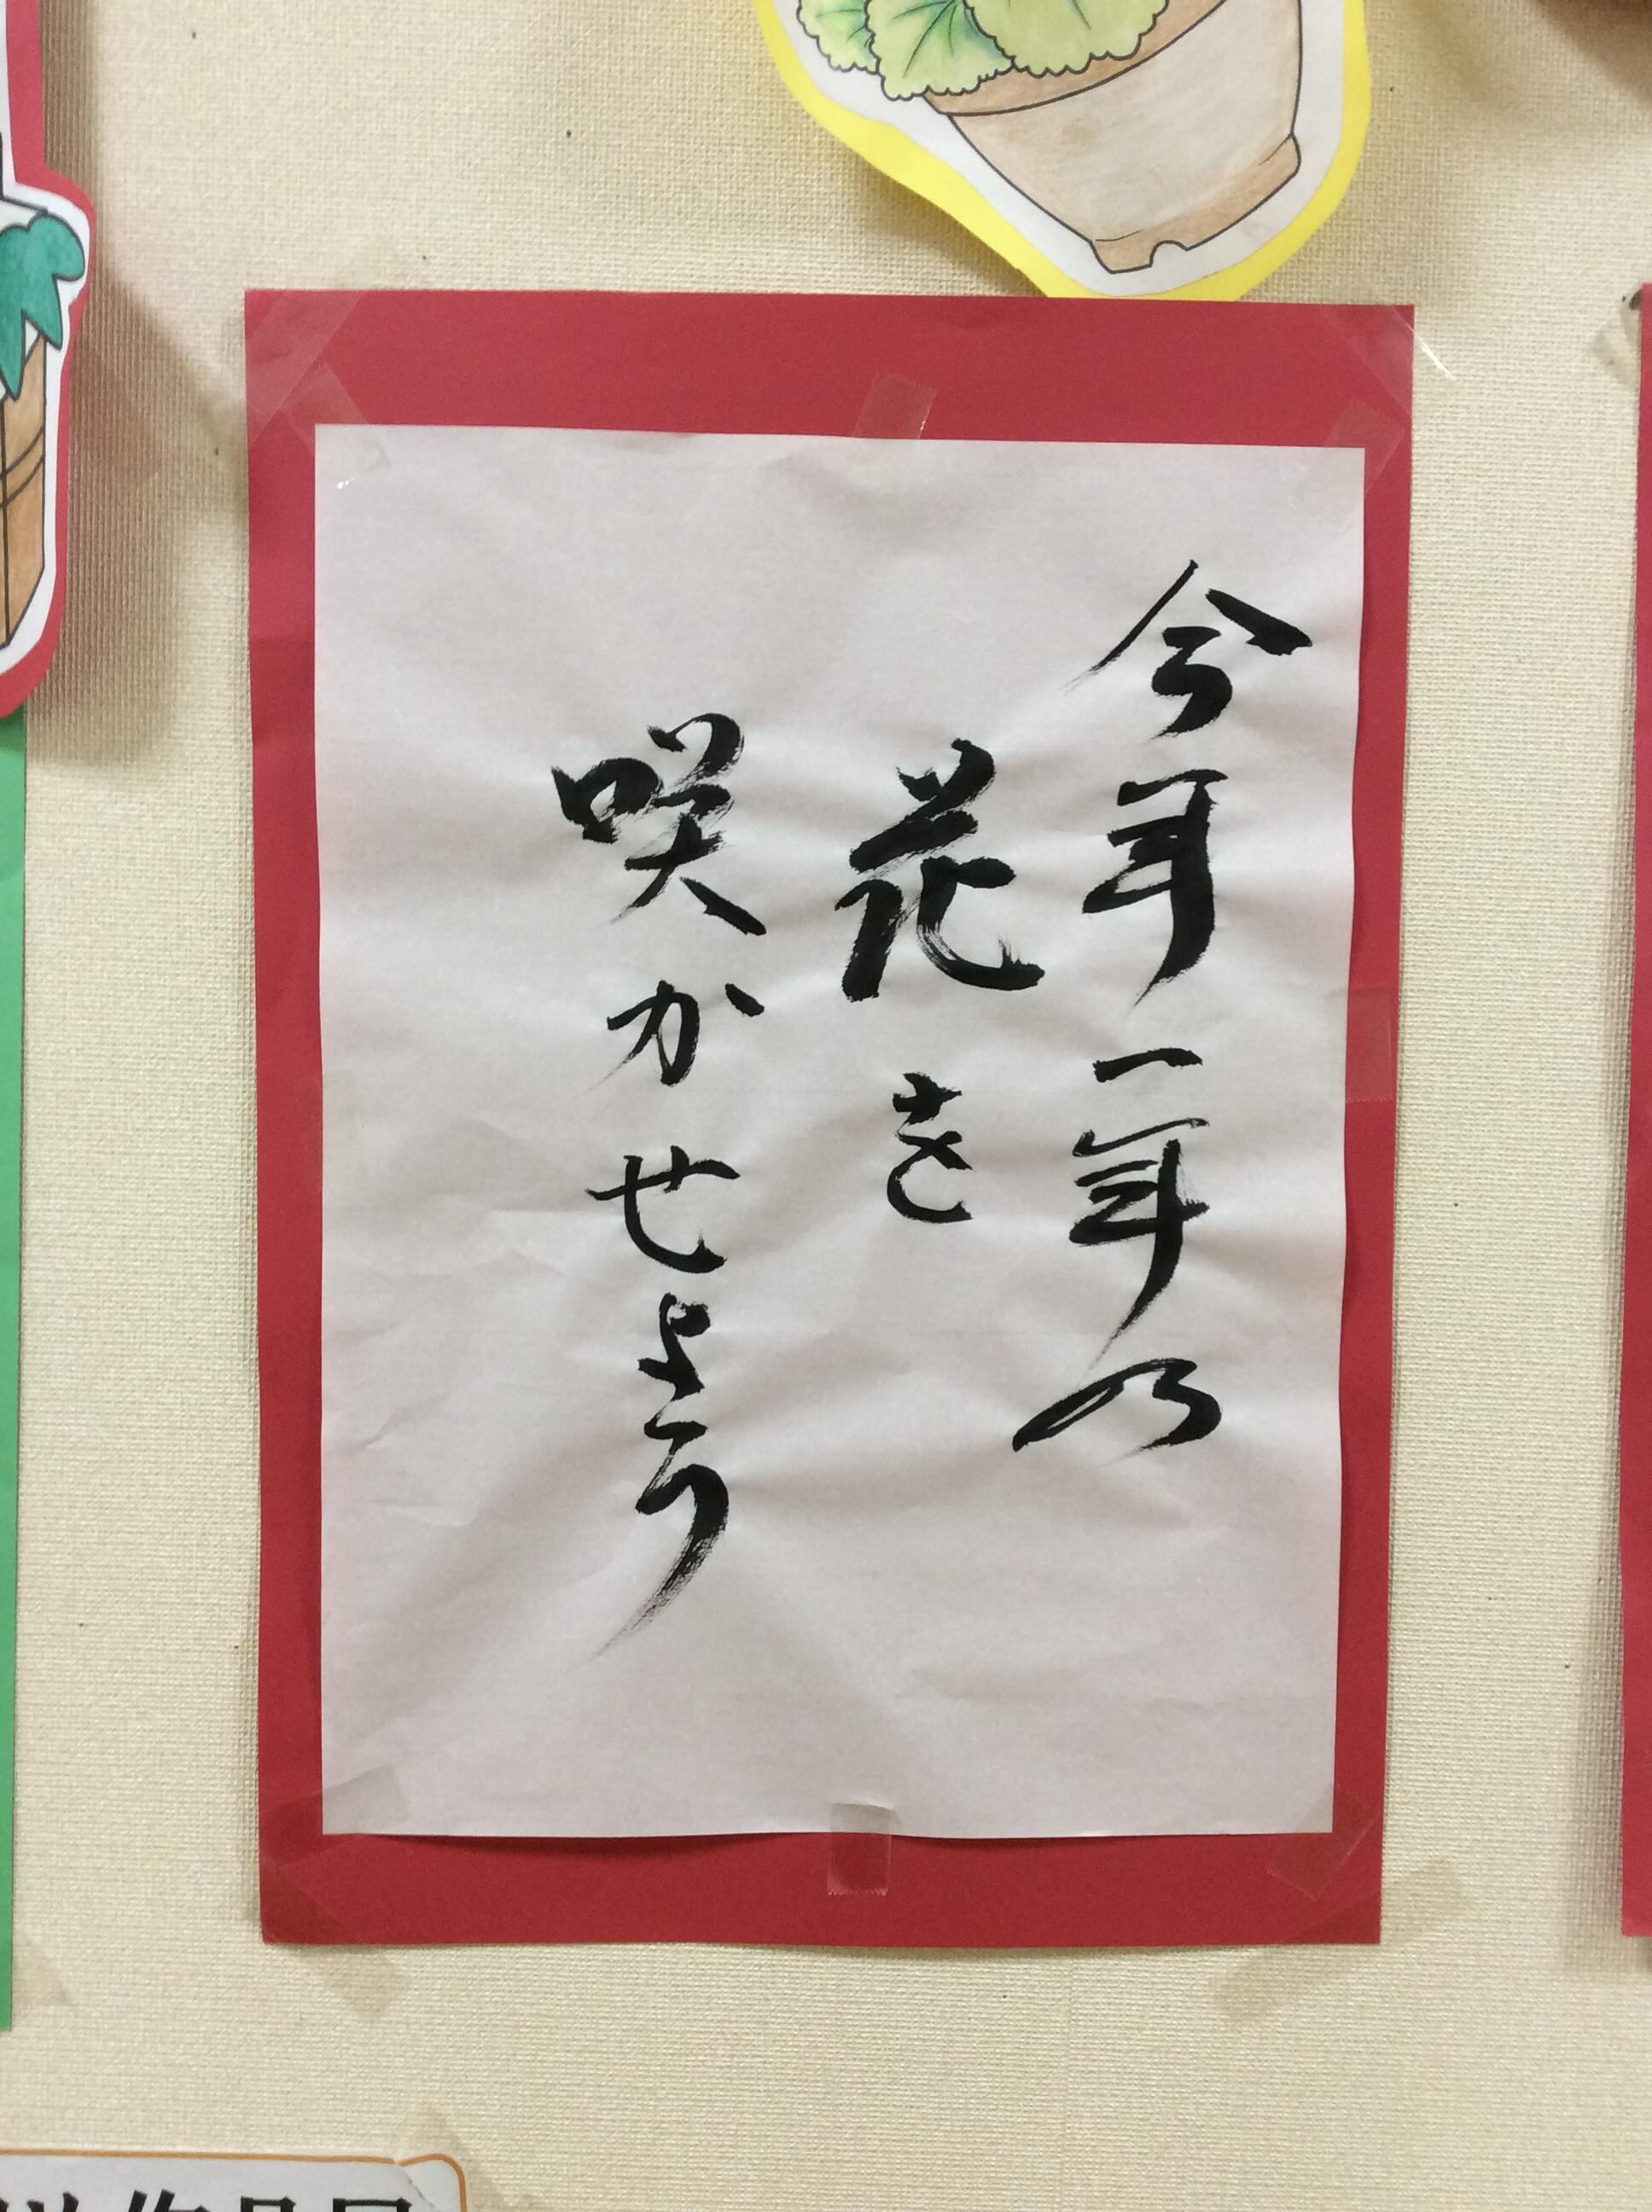 今年一年の
花を
咲かせよう
作品展